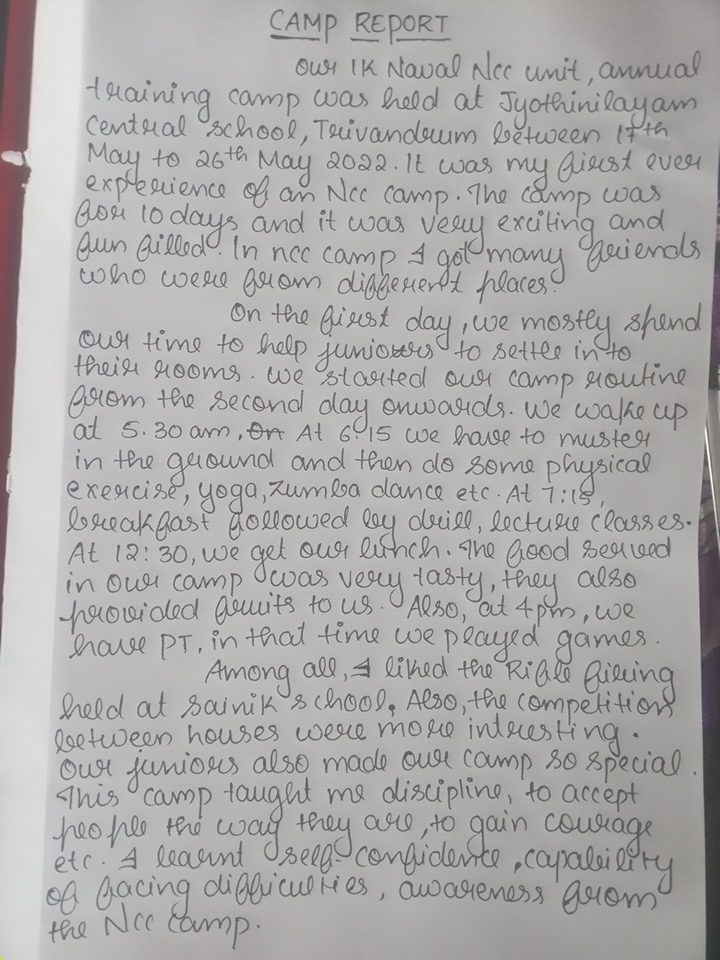 CAMP REPORT
Our 1K Naval Ncc unit, annual
training camp was held at Jyothinilayam
Central school, Trivandrum between 17th
May to 26th May 2022. It was my first ever
experience of an Ncc camp. The camp was
for 10 days and it was very exciting and
fun filled. In ncc camp I got many friends
who were from different places.
On the first day, we mostly spend
our time to help juniors to settle in to
their rooms. We started our camp routine
from the second day onwards. We wake up
at 5.30 am, On At 6:15 we have to muster
in the ground and then do some physical
exercise, yoga, zumba dance etc. At 7:15,
breakfast followed by drill, lecture classes.
At 12:30, we get our lunch. The food served
in our camp was very tasty, they also
provided fruits to us. Also, at 4pm, we
have PT, in that time we played games.
Among all, I liked the Rifle firing
held at Sainik school. Also, the competition
between houses were more intresting.
Our juniors also made our camp so special.
This camp taught me discipline, to accept
people the way they are, to gain courage
etc. I learnt self-confidence, capability
of facing difficulties, awareness from
the Ncc camp.